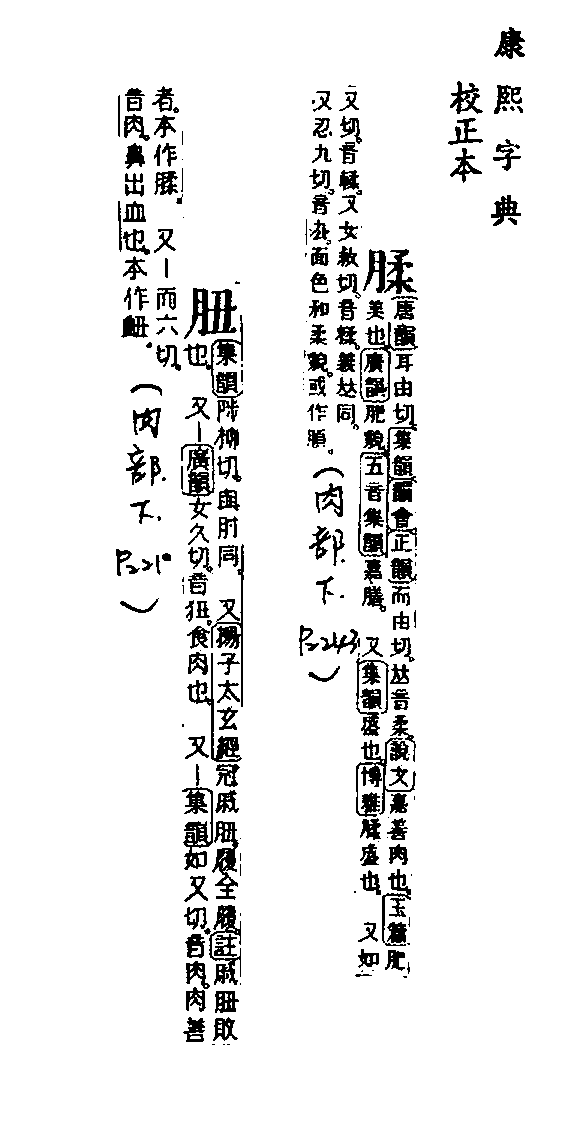 康熙字典
校正本
腬 唐韻耳由切集韻韻會正韻而由切𠀤音柔說文嘉善肉也玉篇肥
美也廣韻肥貌五音集韻嘉膳 又集韻盛也博雅腬盛也 又如
又切音輮又女救切音糅義𠀤同
又忍九切音𠀤面色和柔貌或作
(肉部下 P.243)
䏔 集韻陟柳切與肘同 又揚子太玄經冠戚䏔履全履註戚䏔敗
也 又丨廣韻女久切音狃食肉也 又丨集韻如又切音肉肉善
者本作腬 又丨而六切
音肉鼻出血也本作衄
(肉部下 P.210)